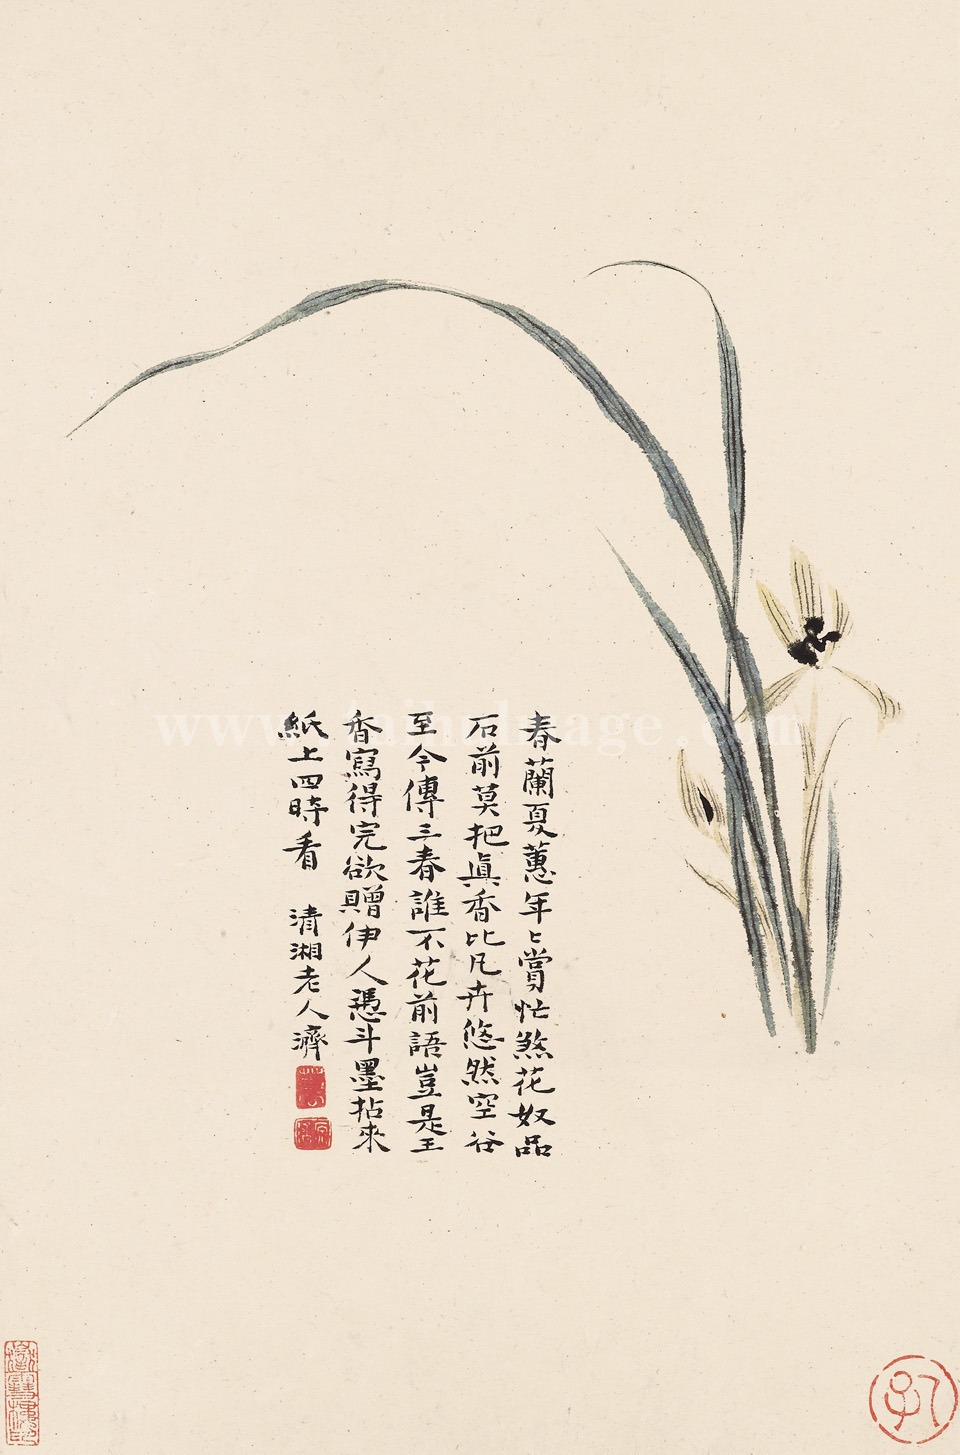 春蘭夏蕙年〻嘗忙煞花奴品
石前莫把真香比凡卉悠然空谷
至今傳三春誰不花前語豈是王
香寫得完欲贈伊人憑斗墨拈來
紙上四時看　清湘老人濟